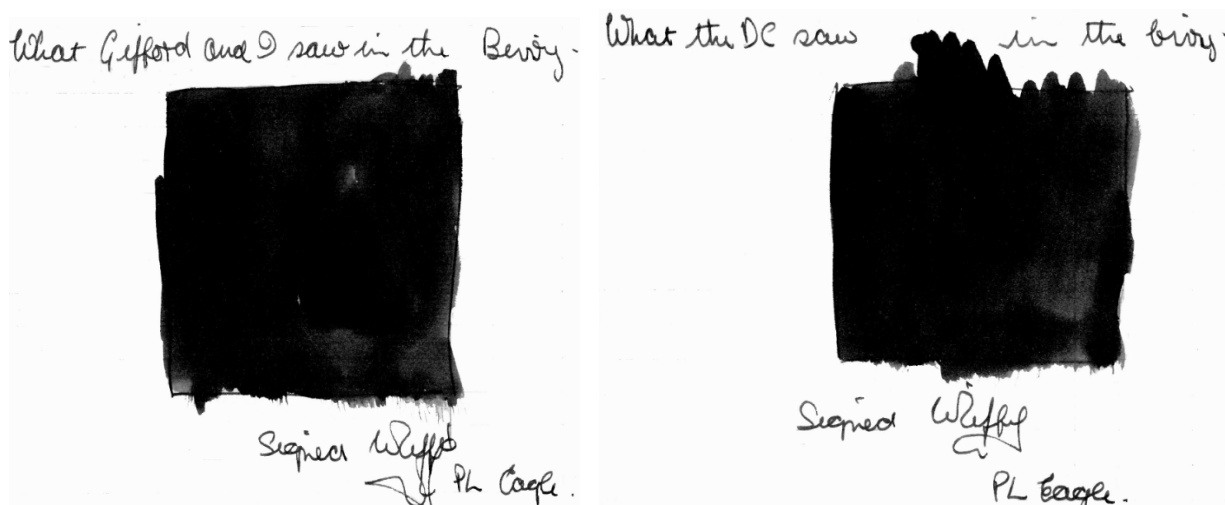 What Gifford and I saw in the Bevvy.
Signed Wheffy
PL Eagle.
What the DC saw in the bivvy.
Signed Wheffy
PL Eagle.